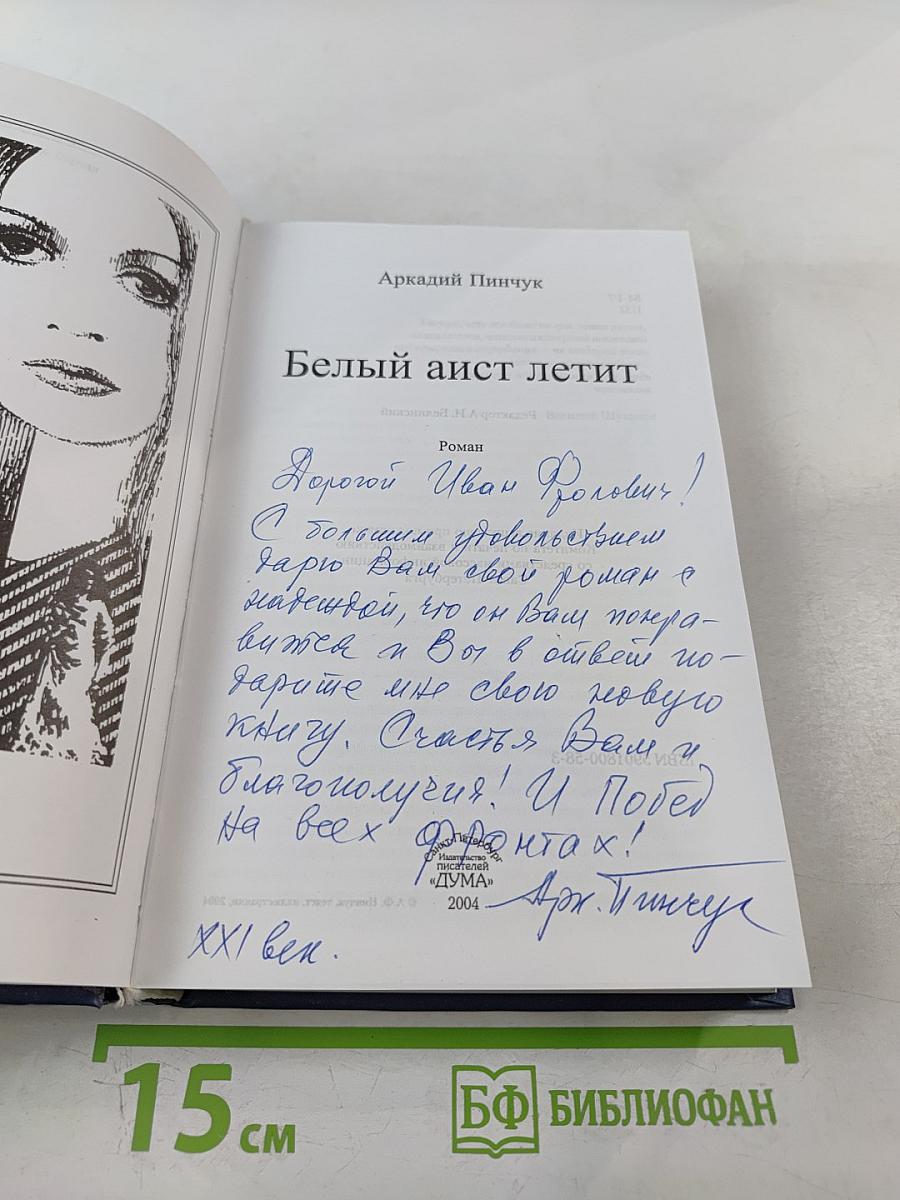 Аркадий Пинчук
Белый аист летит
Роман
Дорогой Иван Фролович!
С большим удовольствием
дарю Вам свой роман с
надеждой, что он Вам понра-
вится и Вы в ответ по-
дарите мне свою новую
книгу. Счастья Вам и
благополучия! И Побед
на всех фронтах!
Санкт-Петербург
Издательство
писателей
«ДУМА»
2004
Арк. Пинчук
XXI век.
15 см
БФ БИБЛИОФАН